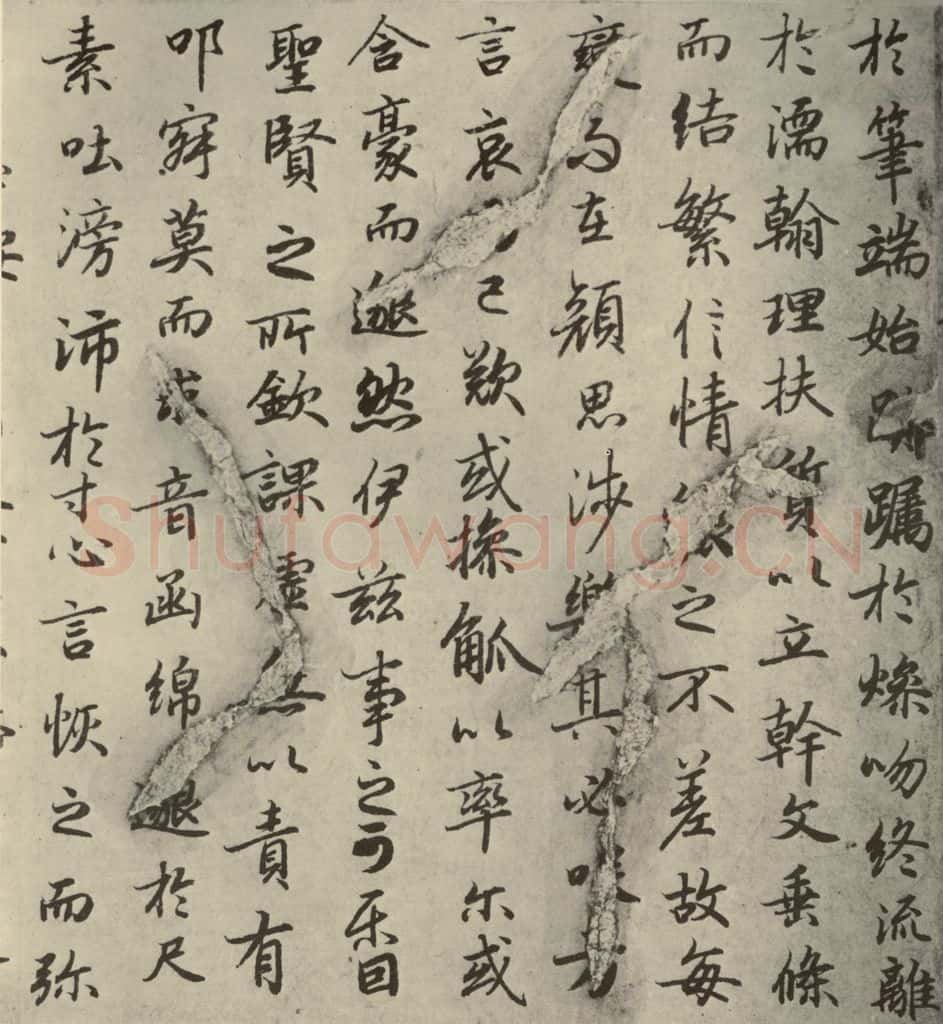 於筆端始躅於燥吻終流離
於濡翰理扶質以立幹文垂條
而結繁信情之不差故每
變而在顔思涉樂其必笑方
言哀已歎或操觚以率尔或
含豪而邈然伊兹事之可乐固
聖賢之所欽課虛無以責有
叩寂莫而求音函綿邈於尺
素吐滂沛於寸心言恢之而弥
Shufawang.CN